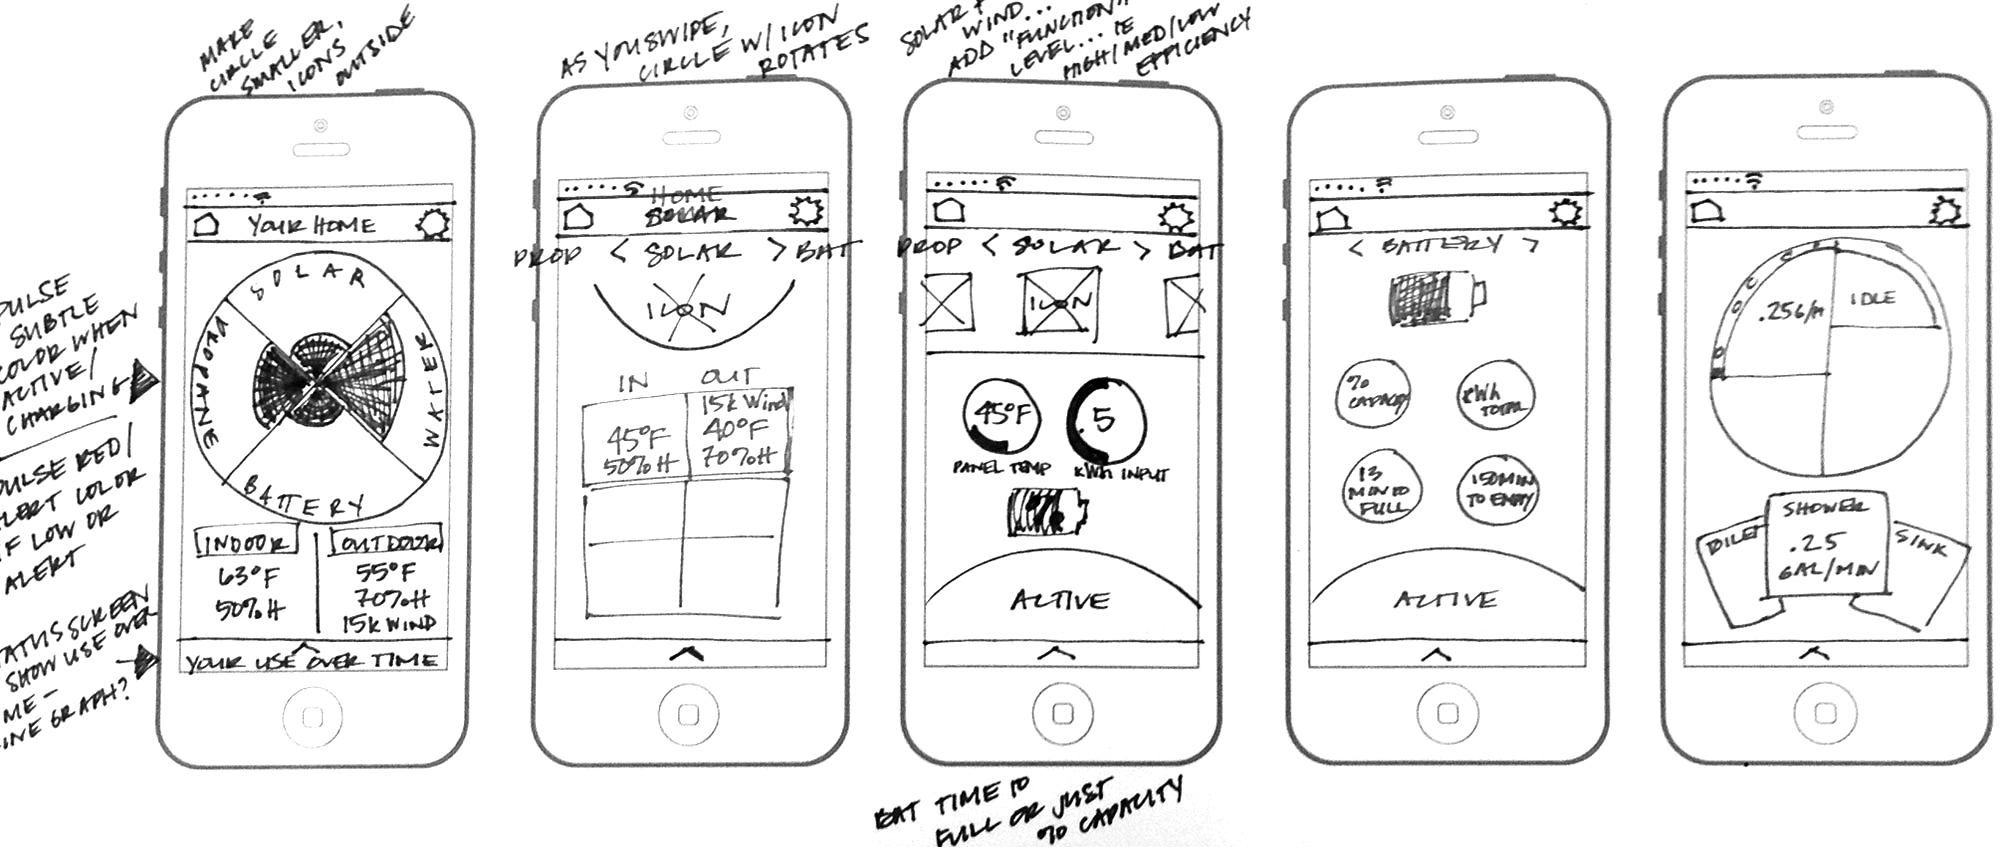 MAKE
CIRCLE
SMALLER,
ICONS
OUTSIDE
PULSE
SUBTLE
COLOR WHEN
ACTIVE/
CHARGING
PULSE RED/
ALERT COLOR
IF LOW OR
ALERT
SCREEN
SHOW USE OVER
ME -
GRAPH?
YOUR HOME
SOLAR
WATER
BATTERY
PROPANE
INDOOR
63°F
50%H
OUTDOOR
55°F
70%H
15K WIND
YOUR USE OVER TIME
AS YOU SWIPE,
CIRCLE W/ ICON
ROTATES
HOME
SOLAR
PROP < SOLAR > BAT
ICON
IN OUT
45°F
50%H
15K Wind
40°F
70%H
SOLAR +
WIND...
ADD "FUNCTION"
LEVEL... IE
HIGH/MED/LOW
EFFICIENCY
PROP < SOLAR > BAT
ICON
45°F
PANEL TEMP
.5
KWh INPUT
ACTIVE
BAT TIME TO
FULL OR JUST
% CAPACITY
< BATTERY >
%
CAPACITY
KWh
TOTAL
13
MIN TO
FULL
150MIN
TO EMPTY
ACTIVE
.25G/M
IDLE
TOILET
SHOWER
.25
GAL/MIN
SINK